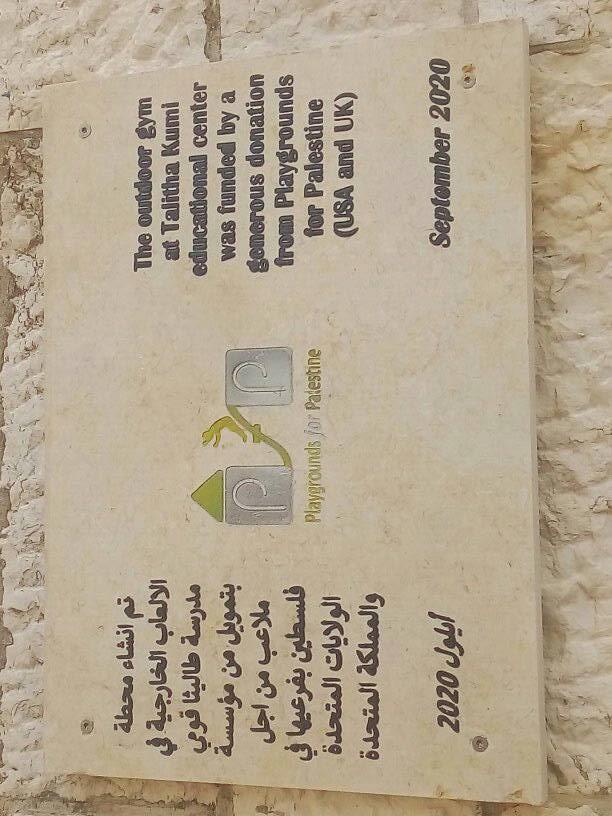 تم انشاء محطة
الالعاب الخارجية في
مدرسة طاليثا قومي
بتمويل من مؤسسة
ملاعب من اجل
فلسطين بفرعيها في
الولايات المتحدة
والمملكة المتحدة
أيلول 2020
Playgrounds for Palestine
The outdoor gym
at Talitha Kumi
educational center
was funded by a
generous donation
from Playgrounds
for Palestine
(USA and UK)
September 2020